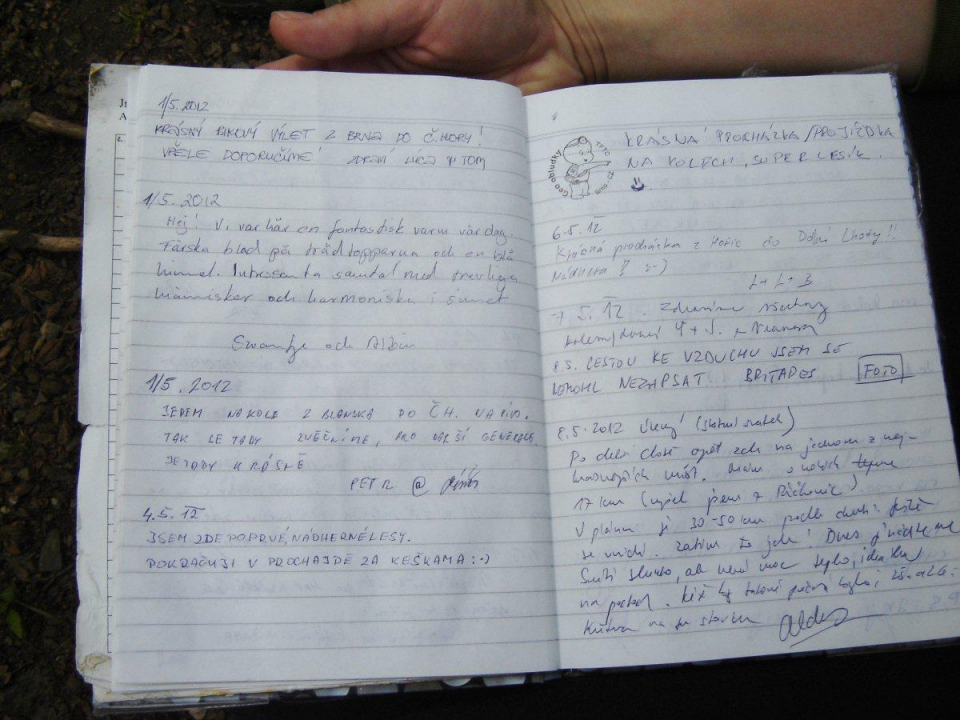 1/5.2012
KRÁSNÝ BIKOVÝ VÝLET Z BRNA DO Č.HORY!
VŘELE DOPORUČÍME ZDRAVÍ LUCA & TOM
1/5.2012
Hej! Vi var här en fantastisk varm vårdag.
Färska blad på trädtopparna och en blå
himmel. Intressanta samtal med trevliga
människor och harmoniska i sinnet
Swantje och Albin
1/5.2012
JEDEM NA KOLE Z BLANSKA DO ČH. NA PIVO.
TAK SE TADY ZVĚČNÍME, PRO DALŠÍ GENERACE
JE TADY KRÁSNĚ
PETR @
4.5. 12
JSEM ZDE POPRVÉ, NÁDHERNÉ LESY.
POKRAČUJI V PROCHAJDĚ ZA KEŠKAMA :-)
Geoobludky
KRÁSNÁ PROCHÁZKA/PROJÍŽDKA
NA KOLECH, SUPER LESÍK.
6.5.12
Krásná procházka z Hořic do Dolní Lhoty!!
Nádhera :-)
L + L + B
7.5.12. Zdravíme všechny
8.5. CESTOU KE VZDUCHU JSEM SE
NEMOHL NEZAPSAT BRITADES FOTO
8.5.2012 Úterý (státní svátek)
Po delší době opět zde na jednom z nej-
krásnějších míst. Mám v nohách
17 km (vyjel jsem z
V plánu je 30-50 km podle chuti.
se uvidí. Zatím to jde! Dnes
Svítí slunko, ale není moc teplo,
na pohod.
Aleš